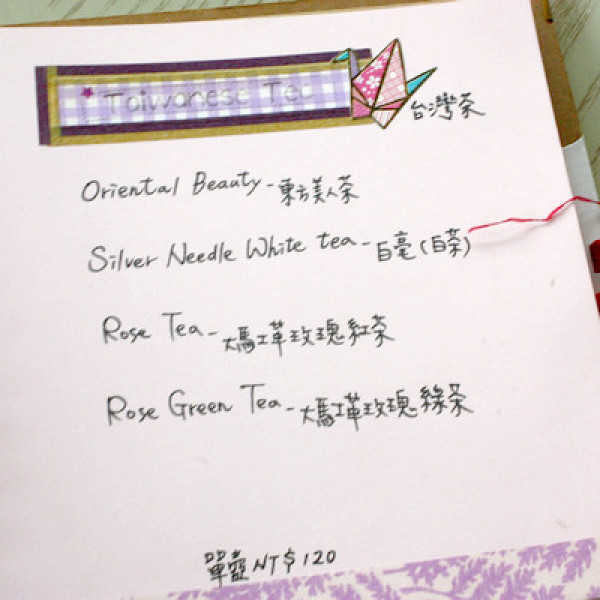 Taiwanese Tea
台灣茶
Oriental Beauty - 東方美人茶
Silver Needle White tea - 白毫(白茶)
Rose Tea - 大馬士革玫瑰紅茶
Rose Green Tea - 大馬士革玫瑰綠茶
單壺 NT$120